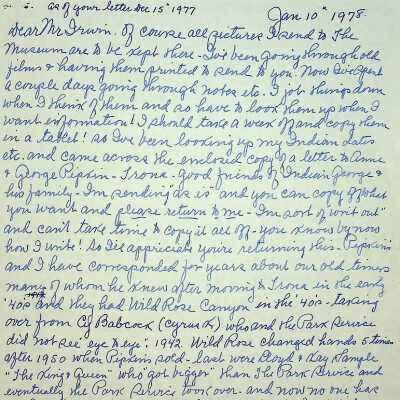 as of your letter Dec 15" 1977
Jan 10" 1978.
Dear Mr Irwin. Of course all pictures I send to the
Museum are to be kept there - I've been going through old
films & having them printed to send to you. Now I've spent
a couple days going through notes etc. I jot things down
when I think of them and so have to look them up when I
want information! I should take a week off and copy them
in a tablet! so I've been looking up my Indian dates
etc. and came across the enclosed copy of a letter to Anne
& George Pipkin - Trona - good friends of Indian George &
his family - I'm sending "as is" and you can copy off what
you want and please return to me - I'm sort of "writ out"
and can't take time to copy it all off - you know by now
how I write! So I'll appreciate you're returning this - Pipkins
and I have corresponded for years about our old timers
many of whom he knew after moving to Trona in the early
'40s and they had Wild Rose Canyon in the '40s - taking
over from Cy Babcock (Cyrus K) who and the Park Service
did not see "eye to eye". 1942. Wild Rose changed hands 5 times
after 1950 when Pipkins sold - last were Lloyd & Kay Sample
"The King & Queen" who "got bigger" than The Park Service and
eventually the Park Service took over - and now no one has